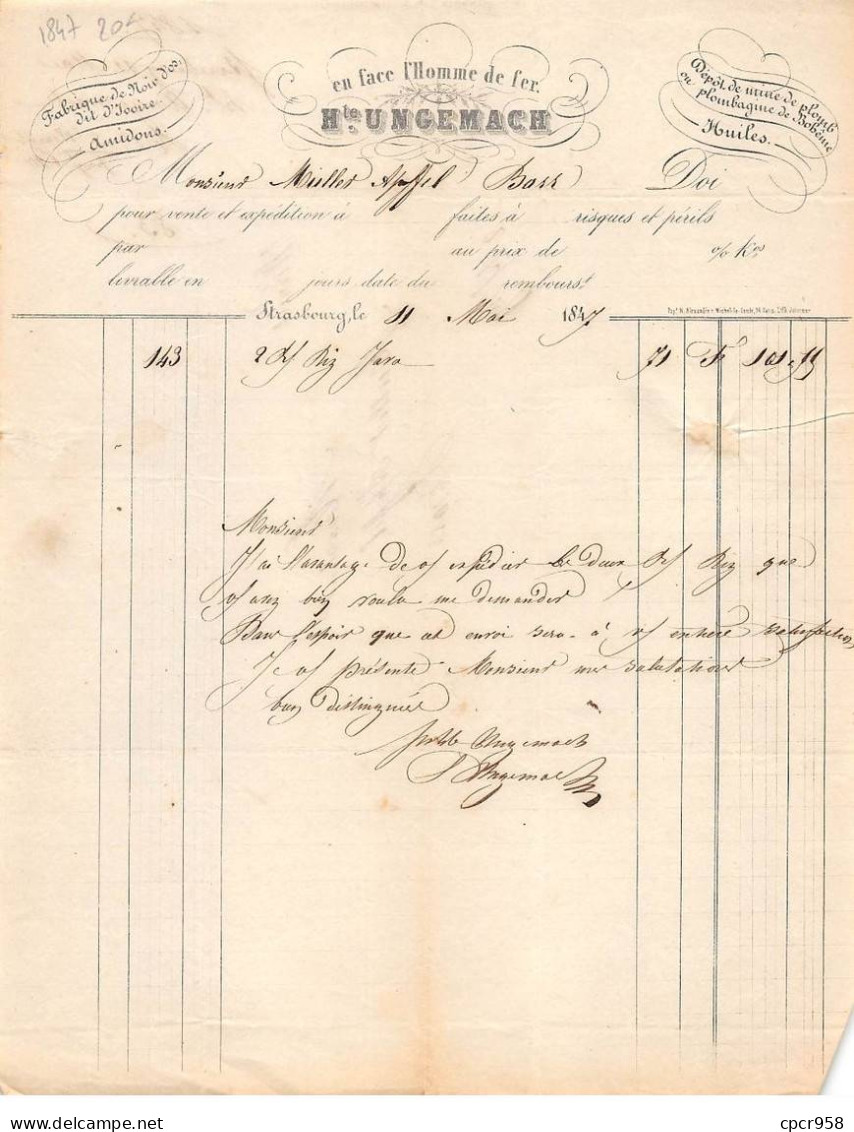 1847 20f
Fabrique de Noir d'os
dit d'Ivoire.
Amidons.
en face l'Homme de fer.
Hte. UNGEMACH
Dépôt de mine de plomb
ou plombagine de Bohême
Huiles.
Monsieur Muller Apffel Barr Doi
pour vente et expédition à faites à risques et périls
par au prix de % Kos
livrable en jours date du rembourst
Strasbourg, le 11 Mai 1847
143 2 Riz Java 71 F 101
Monsieur
J'ai l'avantage de vs expédier le deux Riz que
vs avez bien voulu me demander
Dans l'espoir que cet envoi sera à vs entière satisfaction
Je vs présente Monsieur mes salutations
bien distinguées
Ungemach
Ungemach
cpcr958